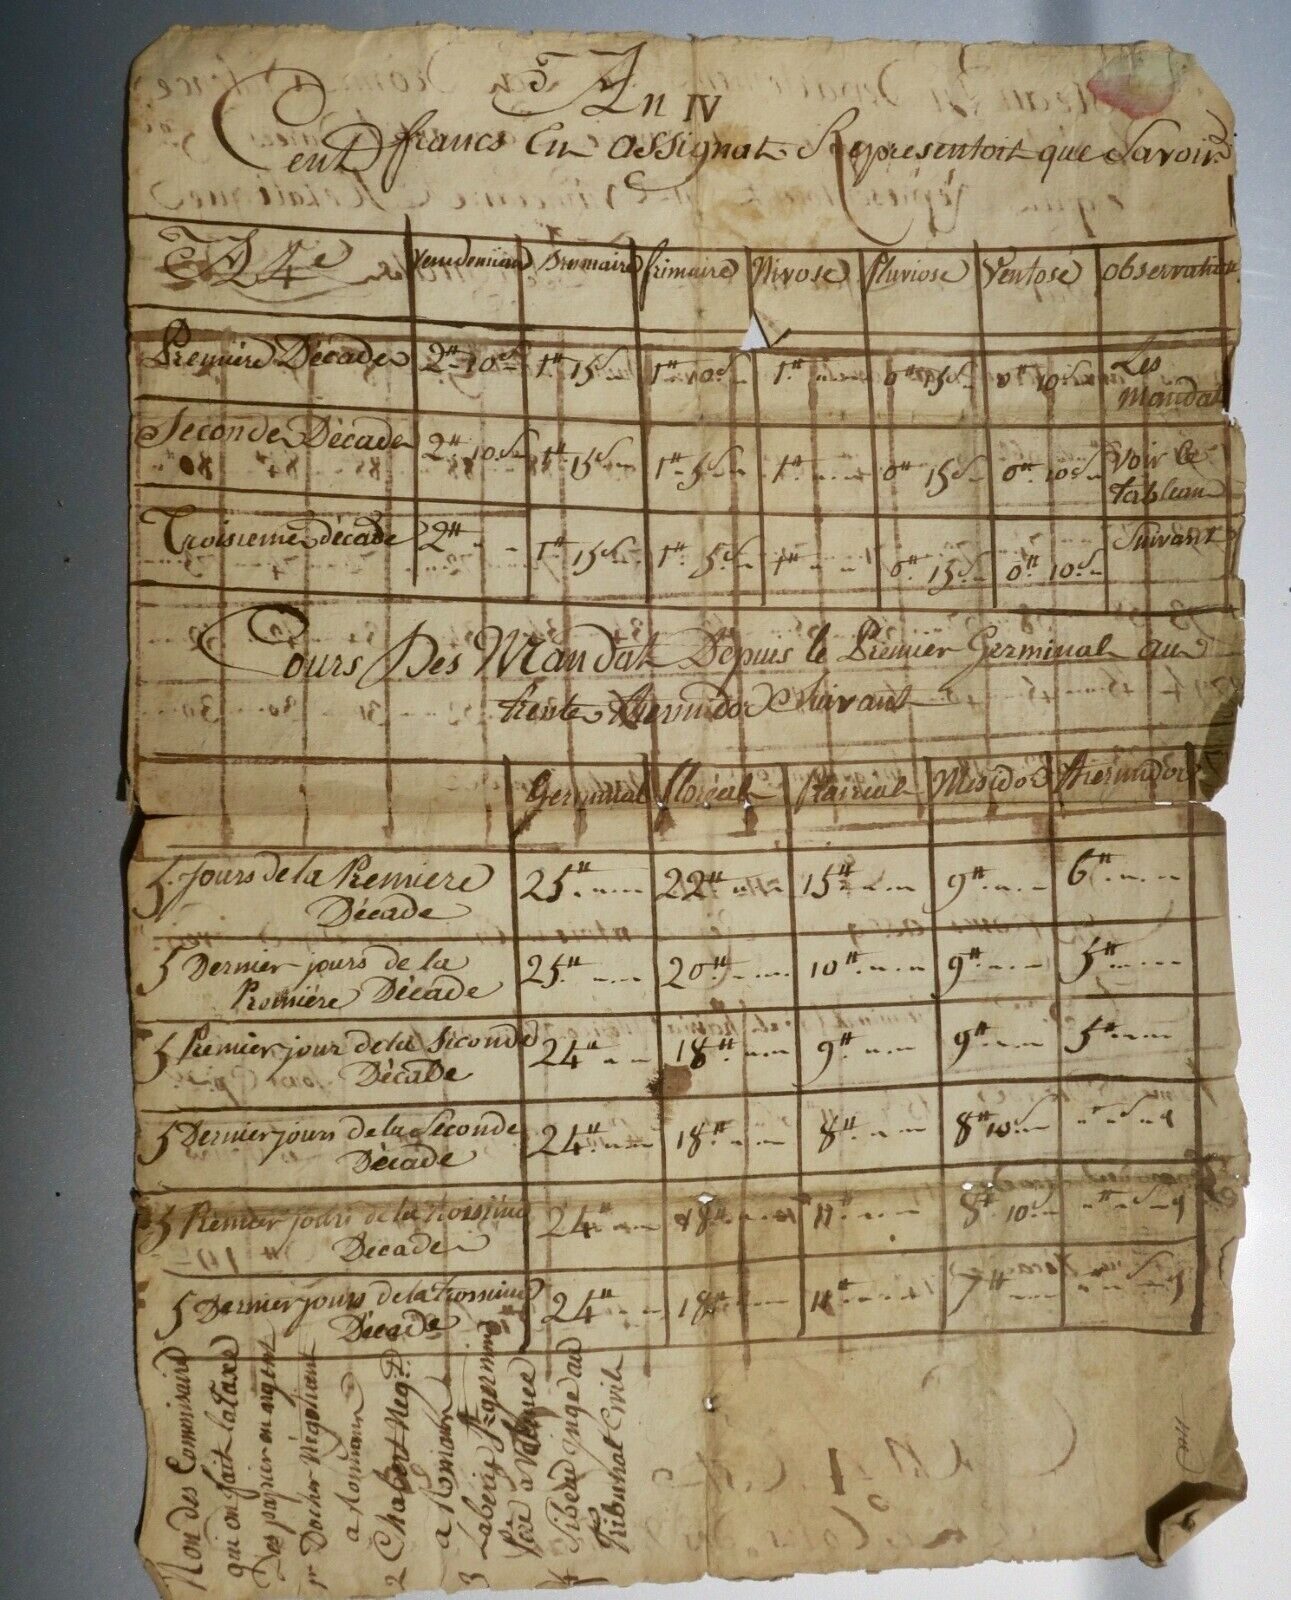 An IV
Cent francs En assignat Representoit que Savoir
A 4e Vendemiaire Brumaire frimaire Nivose Pluviose Ventose observation
Premiere Décade 2tt 10s 1tt 15s 1tt 10s 1tt 0tt 15s 0tt 10s Les Mandat
Seconde Décade 2tt 10s 1tt 15s 1tt 5s 1tt 0tt 15s 0tt 10s Voir le tableau
Troisieme décade 2tt 1tt 15s 1tt 5s 1tt 0tt 15s 0tt 10s Suivant
Cours Des Mandat Depuis le Premier Germinal au
trente thermidor Suivant
Germinal floréal Prairial Mesidor thermidor
5 Jours de la Premiere
Décade 25tt 22tt 15tt 9tt 6tt
5 Dernier jours de la
Premiére Décade 25tt 20tt 10tt 9tt 5tt
5 Premier jour de la Seconde
Décade 24tt 18tt 9tt 9tt 5tt
5 Dernier jours de la Seconde
Décade 24tt 18tt 8tt 8tt 10s
5 Premier jours de la troisiéme
Décade 24tt 18tt 11tt 8tt 10s
5 Dernier jours de la troisiéme
Décade 24tt 18tt 11tt 7tt
Non des Commisaire
qui on fait la taxe
Des papier en argent
1er Négotiant
a Romans
2 Chabert Negt
a Romans
3 Laberie St germain
Pere a Valence
4 juge au
Tribunal Civil